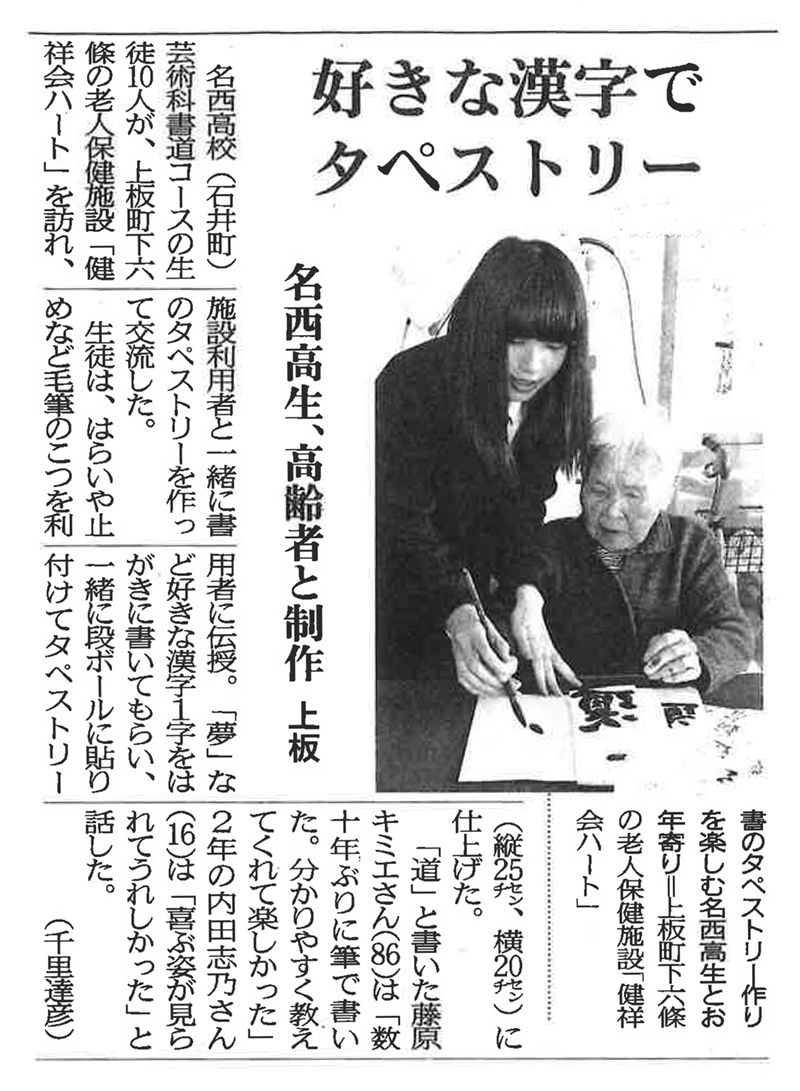 好きな漢字で
タペストリー
名西高生、高齢者と制作 上板
名西高校（石井町）
芸術科書道コースの生
徒10人が、上板町下六
條の老人保健施設「健
祥会ハート」を訪れ、
施設利用者と一緒に書
のタペストリーを作っ
て交流した。
生徒は、はらいや止
めなど毛筆のこつを利
用者に伝授。「夢」な
ど好きな漢字１字をは
がきに書いてもらい、
一緒に段ボールに貼り
付けてタペストリー
（縦25㌢、横20㌢）に
仕上げた。
「道」と書いた藤原
キミエさん(86)は「数
十年ぶりに筆で書い
た。分かりやすく教え
てくれて楽しかった」
２年の内田志乃さん
(16)は「喜ぶ姿が見ら
れてうれしかった」と
話した。
（千里達彦）
書のタペストリー作り
を楽しむ名西高生とお
年寄り＝上板町下六條
の老人保健施設「健祥
会ハート」